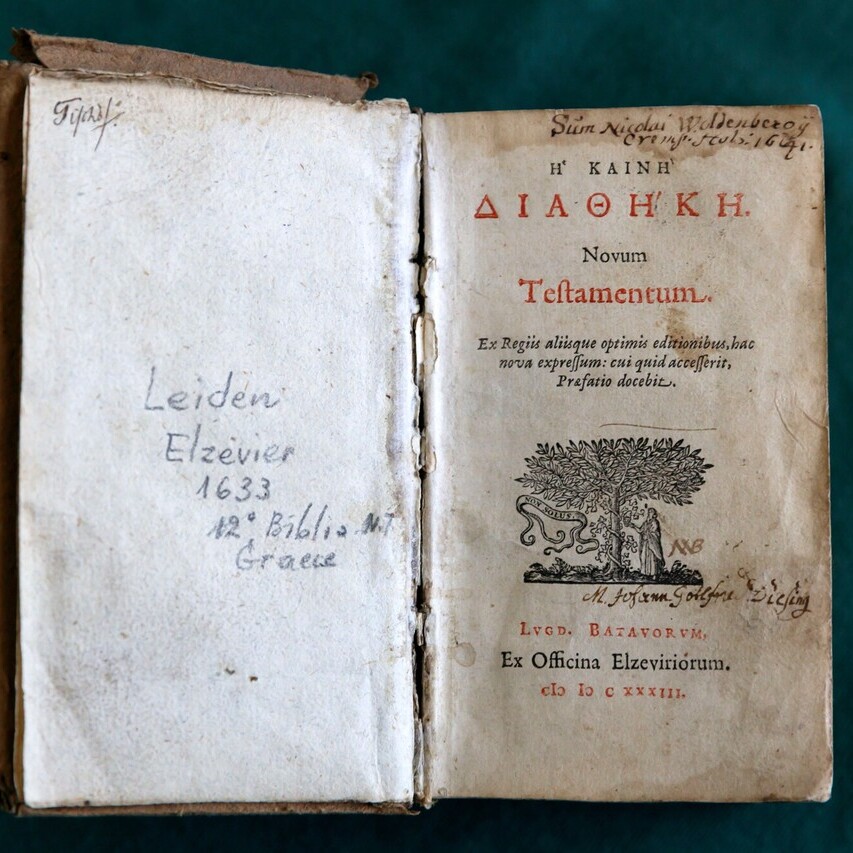 Leiden
Elzevier
1633
12° Biblia N.T
Graece
Sum Nicolai
1641.
Η ̔ ΚΑΙΝΗ ̀
ΔΙΑΘΗ ́ΚΗ.
Novum
Teſtamentum.
Ex Regiis aliisque optimis editionibus, hac
nova expreſſum: cui quid acceſſerit,
Præfatio docebit.
NON SOLUS.
M. Johann Diesing
LVGD. BATAVORVM,
Ex Officina Elzeviriorum.
cIɔ Iɔ c xxxiii.